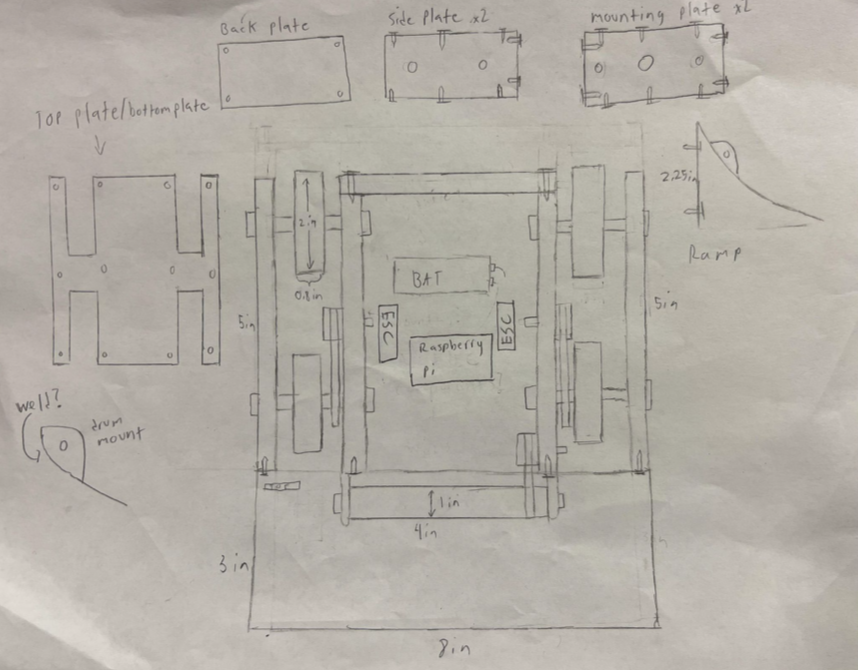 Back plate
side plate x2
mounting plate x2
Top plate/bottom plate
2.25in
Ramp
2in
0.8in
BAT
5in
5in
ESC
ESC
Raspberry
Pi
weld?
drum
mount
1in
4in
3in
8in